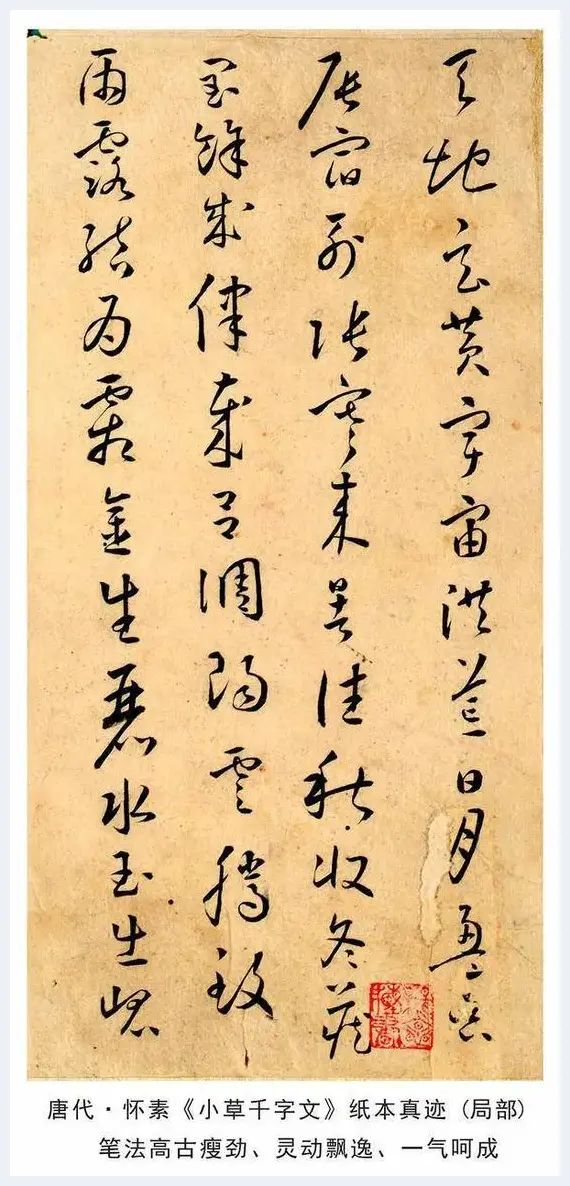 天地玄黄宇宙洪荒日月盈昃
辰宿列張寒來暑往秋收冬藏
閏餘成律歲呂調陽雲騰致
雨露結為霜金生麗水玉出崐
唐代·怀素《小草千字文》纸本真迹 (局部)
笔法高古瘦劲、灵动飘逸、一气呵成